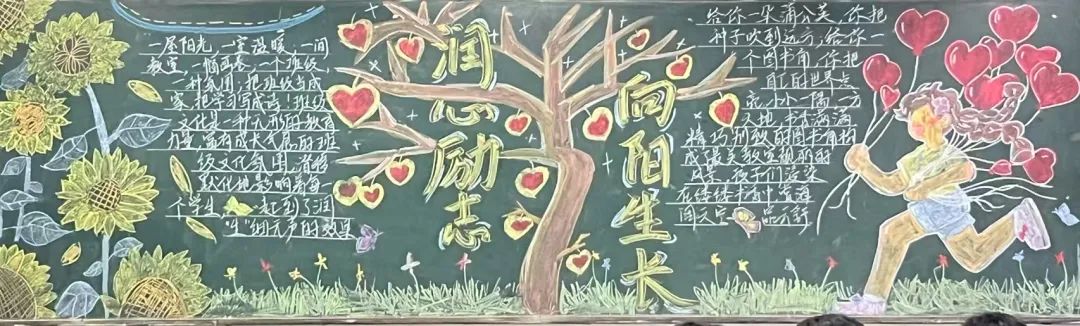 一屋阳光,一室温暖,一间
教室,一幅画卷,一个班级,
一种氛围,把班级当成
家,把学习写成诗!班级
文化是一种无形的教育
力量,富有成长气息的班
级文化氛围,潜移
默化地影响着每
个学生,起到了“润
“生”细无声的效果
润心励志
向阳生长
给你一朵蒲公英,你把
种子吹到远方,给你一
个图书角,你把
自己的世界点
亮,小小一隅,一方
天地,书香满满
精巧别致的图书角构
成最美教室靓丽的
风景,孩子们
在缕缕书香中
闻